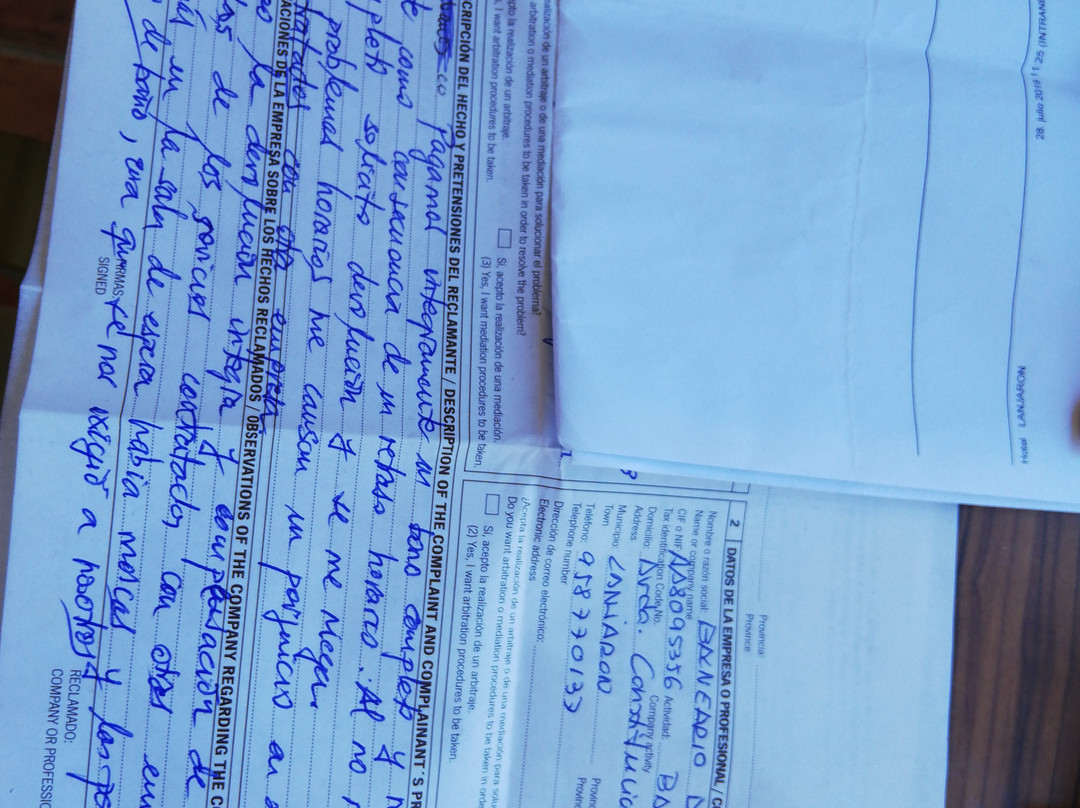 28 julio 2018
Hotel
LANJARON
Provincia:
Province
2 DATOS DE LA EMPRESA O PROFESIONAL /
Nombre o razón social: BALNEARIO
Name or company name
CIF o NIF A
Tax identification Code No. Actividad:
Company activity
Domicilio: Avda. Constitució
Address
Municipio: LANJARON
Town
Teléfono: 958770133
Telephone number
Dirección de correo electrónico:
Electronic address
¿Acepta la realización de un arbitraje o de una mediación para
Do you want arbitration or mediation procedures to be taken in
Sí, acepto la realización de un arbitraje.
(2) Yes, I want arbitration procedures to be taken.
alización de un arbitraje o de una mediación para solucionar el problema?
arbitration o mediation procedures to be taken in order to resolve the problem?
pto la realización de un arbitraje.
I want arbitration procedures to be taken.
Sí, acepto la realización de una mediación.
(3) Yes, I want mediation procedures to be taken.
CRIPCIÓN DEL HECHO Y PRETENSIONES DEL RECLAMANTE / DESCRIPTION OF THE COMPLAINT AND COMPLAINANT´S PR
pagamos integramente un bono completo y
como consecuencia de un retraso horario. Al no
pleto solicito devolución y se me niega.
problemas horarios me causan un perjuicio
tratados con otra empresa.
ACIONES DE LA EMPRESA SOBRE LOS HECHOS RECLAMADOS / OBSERVATIONS OF THE COMPANY REGARDING THE C
la devolución integra y compensación de
de los servicios contratados con otras em
en la sala de espera había moscas y las
de baño, una que nos exigió a nosotros
FIRMAS
SIGNED
RECLAMADO:
COMPANY OR PROFESSIO